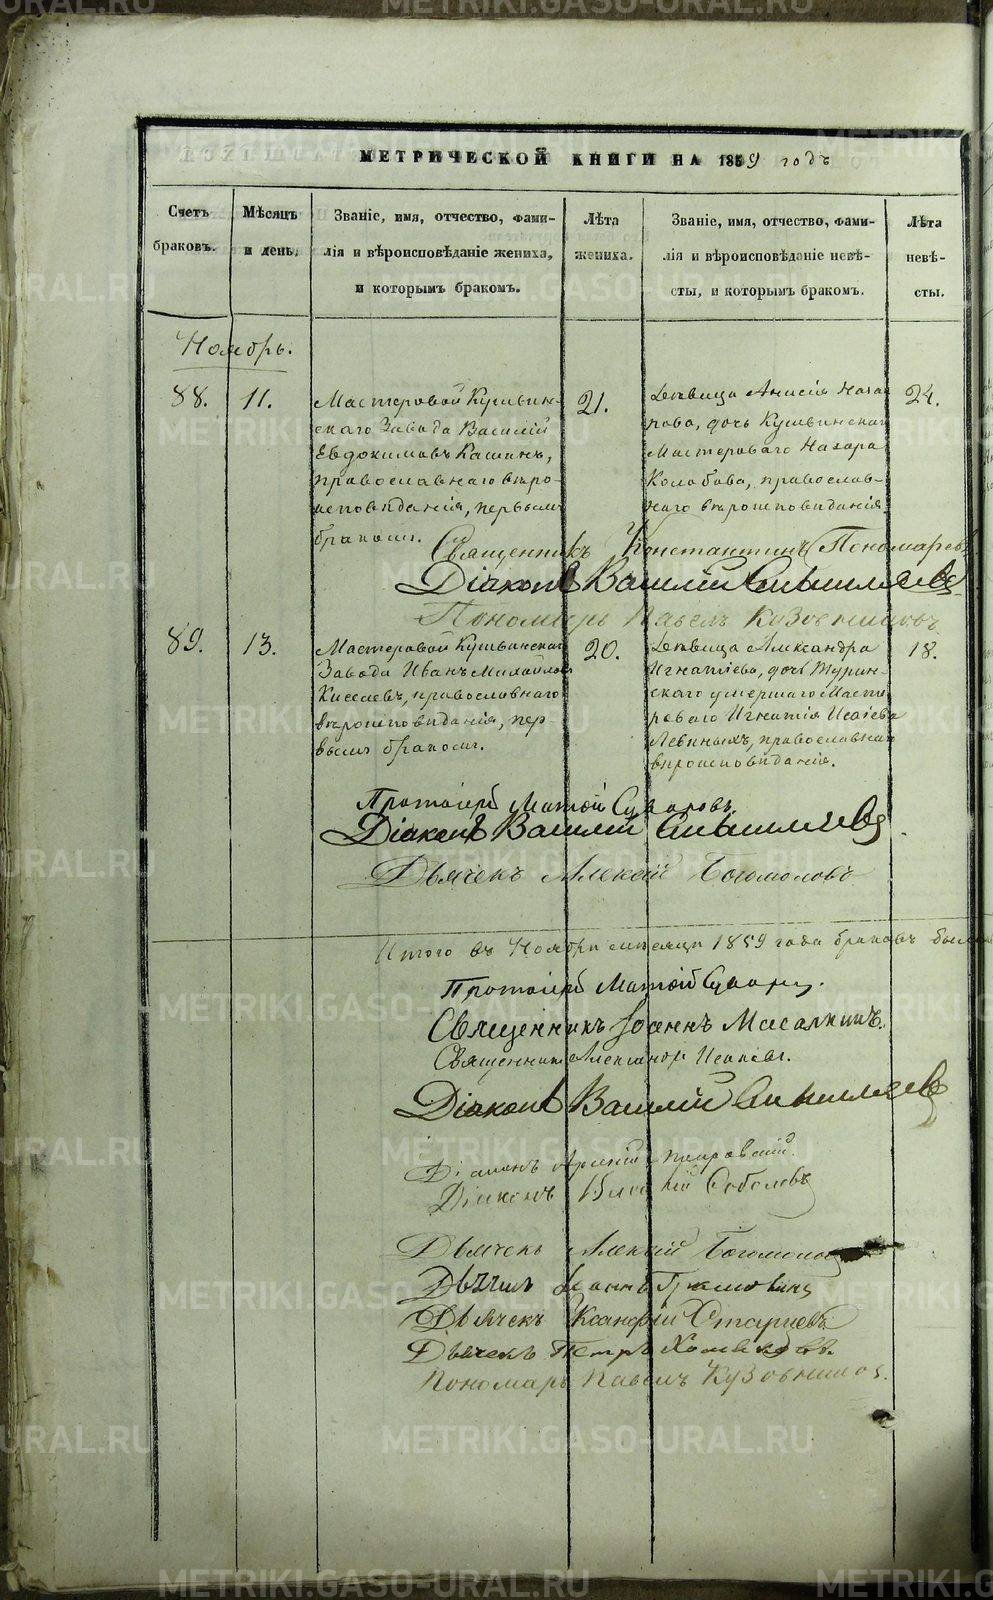 МЕТРИЧЕСКОЙ КНИГИ НА 1859 годъ
Счетъ браковъ.
Мѣсяцъ и день.
Званіе, имя, отчество, фами-
лія и вѣроисповѣданіе жениха,
и которымъ бракомъ.
Лѣта жениха.
Званіе, имя, отчество, фами-
лія и вѣроисповѣданіе невѣ-
сты, и которымъ бракомъ.
Лѣта невѣ-
сты.
Ноябрь.
88.
11.
Мастеровой Кушвин-
скаго Завода Василій
Евдокимовъ Кашинъ,
православнаго вѣро-
исповѣданія, первымъ
бракомъ.
21.
Дѣвица Анисія Наза
рова, дочь Кушвинскаго
Мастероваго Назара
Колобова, православ-
наго вѣроисповѣданія.
24.
Священникъ Константинъ Пономаревъ
Діаконъ Василій
Пономарь Павелъ Кузовниковъ
89.
13.
Мастеровой Кушвинскаго
Завода Иванъ Михайлов
Киселевъ, православнаго
вѣроисповѣданія, пер-
вымъ бракомъ.
20.
Дѣвица Александра
Игнатіева, дочь Турин-
скаго умершаго Масте
роваго Игнатія Исаіева
Левиныхъ, православнаго
вѣроисповѣданія.
18.
Протоіерей Матѳій Суворовъ.
Діаконъ Василій
Дьячекъ Алексій Богомоловъ
Итого въ Ноябрѣ мѣсяцѣ 1859 года браковъ было
Протоіерей Матѳій Суворовъ.
Священникъ Іоаннъ Масалкинъ.
Священникъ Александр
Діаконъ Василій
Діаконъ
Діаконъ Соболевъ
Дьячекъ Алексій Богомолов
Дьячекъ Іоаннъ
Дьячекъ Ксанфій Старцевъ
Дьячекъ Петръ
Пономарь Павелъ Кузовников.
METRIKI.GASO-URAL.RU